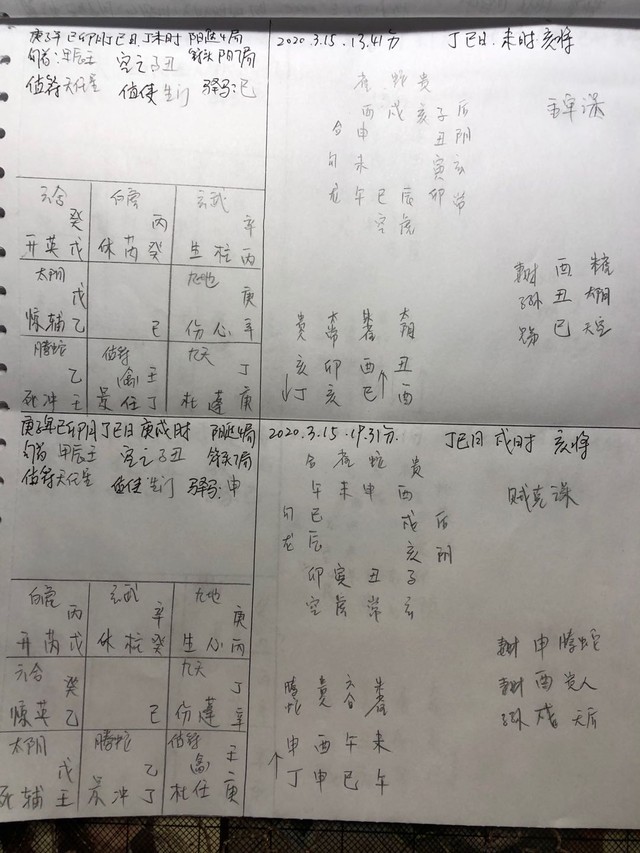 庚子年己卯月丁巳日丁未时 阳遁4局
旬首:甲辰壬 空亡子丑 转头阴7局
值符天任星 值使生门 驿马:巳
六合 白虎 玄武
癸 丙 辛
开英戊 休芮癸 生柱丙
太阴 九地
戊 庚
惊辅乙 己 伤心辛
腾蛇 值符 九天
乙 禽壬 丁
死冲壬 景任丁 杜蓬庚
2020.3.15.13.41分 丁巳日.未时.亥将
雀蛇贵
酉戌亥子后
合申 丑阴
勾未 寅玄
龙午巳辰卯常
空虎
财酉
子孙丑太阴
巳天空
贵常雀阴
亥卯酉丑
↓丁亥巳↑酉
庚子年己卯月丁巳日庚戌时 阳遁4局
旬首甲辰壬 空亡子丑
值符天任星 值使生门 驿马:申
白虎 玄武 九地
丙 辛 庚
开芮戊 休柱癸 生心丙
六合 九天
癸 丁
惊英乙 己 伤蓬辛
太阴 腾蛇 值符
戊 乙 禽壬
死辅壬 景冲丁 杜任庚
2020.3.15.19.31分. 丁巳日 戌时 亥将
合雀蛇贵
午未申酉
勾巳 戌后
龙辰 亥阴
卯寅丑子
空虎常玄
贼克课
财申腾蛇
财酉贵人
子孙戌天后
腾蛇 贵 六合 朱雀
申酉午未
↑丁申巳午